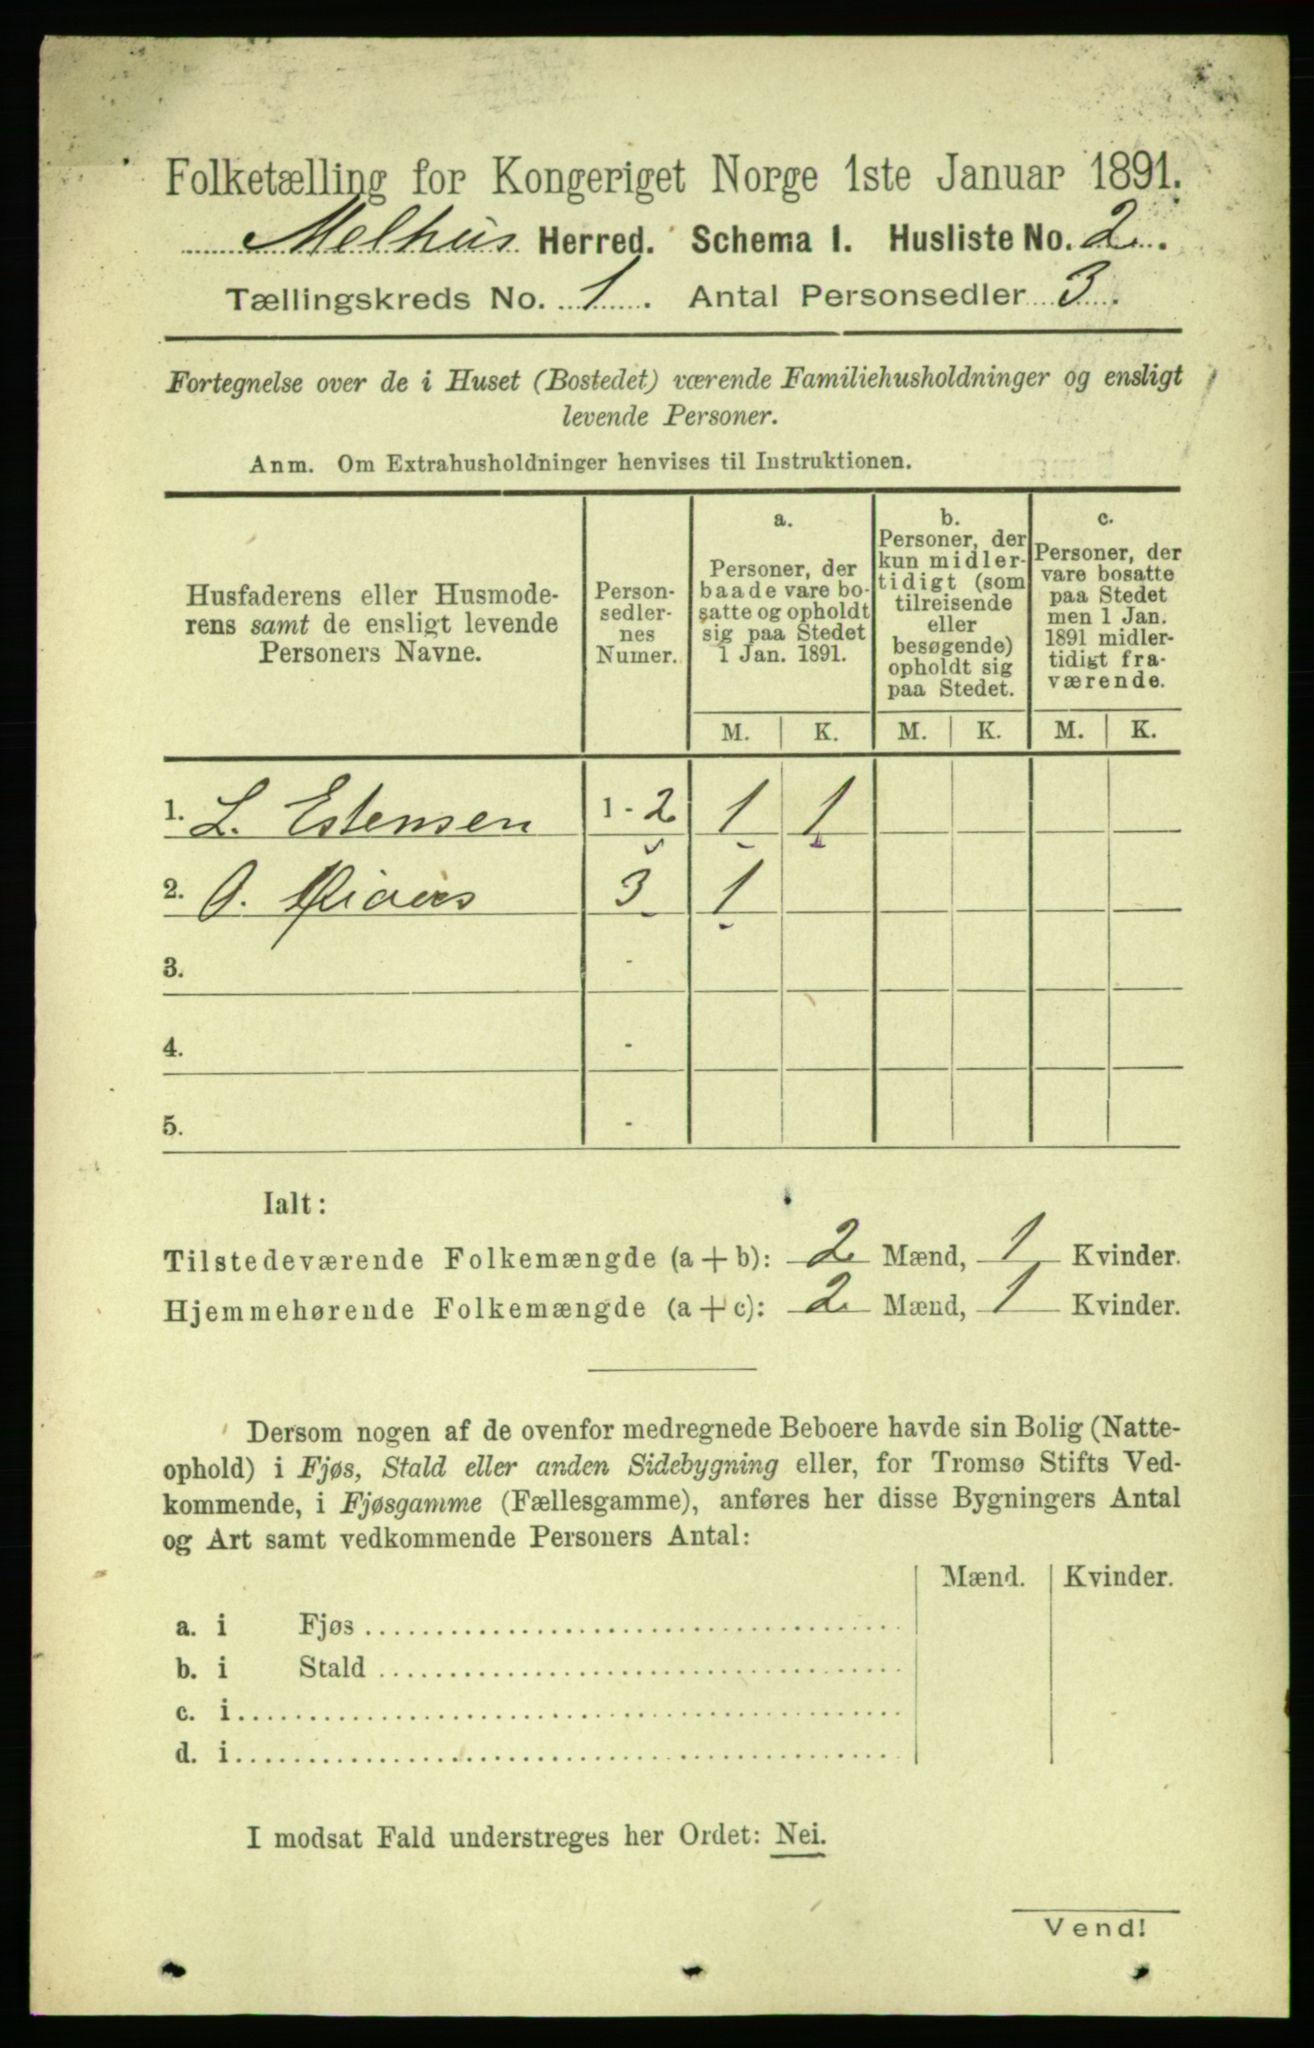 Folketælling for Kongeriget Norge 1ste Januar 1891.
Melhus Herred. Schema 1. Husliste No. 2.
Tællingskreds No. 1. Antal Personsedler 3.
Fortegnelse over de i Huset (Bostedet) værende Familiehusholdninger og ensligt
levende Personer.
Anm. Om Extrahusholdninger henvises til Instruktionen.
Husfaderens eller Husmode-
rens samt de ensligt levende
Personers Navne.
Person-
sedler-
nes
Numer.
a.
Personer, der
baade vare bo-
satte og opholdt
sig paa Stedet
1 Jan. 1891.
b.
Personer, der
kun midler-
tidigt (som
tilreisende
eller
besøgende)
opholdt sig
paa Stedet.
c.
Personer, der
vare bosatte
paa Stedet
men 1 Jan.
1891 midler-
tidigt fra-
værende.
M. K. M. K. M. K.
1. L. Estensen 1 - 2 1 1
2. O. 3 1
3. -
4. -
5. -
Ialt:
Tilstedeværende Folkemængde (a + b): 2 Mænd, 1 Kvinder.
Hjemmehørende Folkemængde (a + c): 2 Mænd, 1 Kvinder.
Dersom nogen af de ovenfor medregnede Beboere havde sin Bolig (Natte-
ophold) i Fjøs, Stald eller anden Sidebygning eller, for Tromsø Stifts Ved-
kommende, i Fjøsgamme (Fællesgamme), anføres her disse Bygningers Antal
og Art samt vedkommende Personers Antal:
Mænd. Kvinder.
a. i Fjøs
b. i Stald
c. i
d. i
I modsat Fald understreges her Ordet: Nei.
Vend!